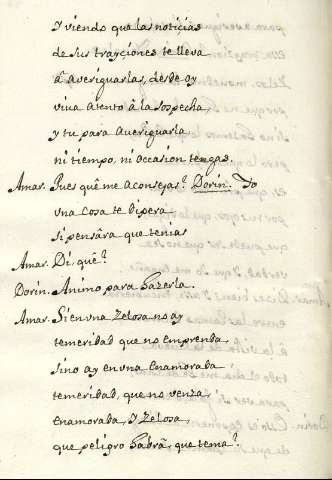 Y viendo que las noticias
de sus trayciones te lleva
â averiguarlas, desde oy
viva atento â la sospecha,
y tu para averiguarla
ni tiempo, ni occasion tengas.
Amar. Pues quê me aconsejas? Dorin. Yo
vna cosa te dixera
si pensâra que tenias
Amar. Di, quê?
Dorin. Animo para hazerla.
Amar. Si en vna zelosa no ay
temeridad que no emprenda,
sino ay en vna enamorada
temeridad, que no venza,
enamorada, y zelosa,
que peligro habrâ, que tema?